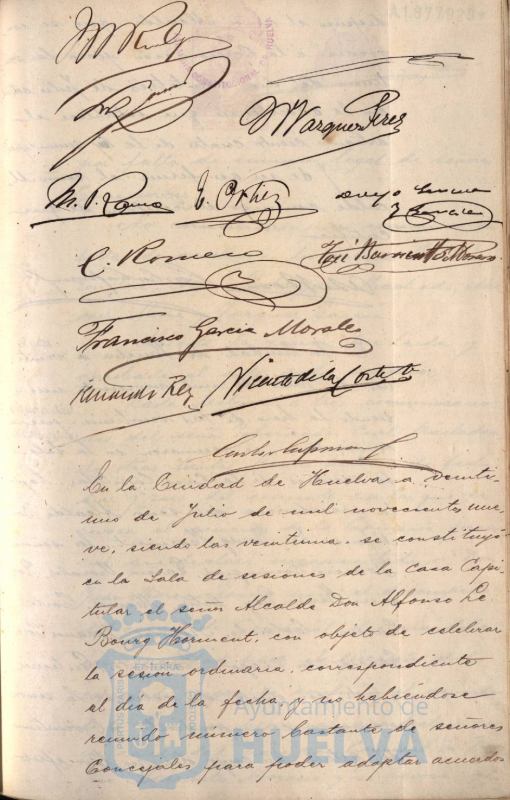 A1877928
M. Marquez Perez
M. P. Romo E. Ortiz Diego Garcia
y Garcia
C. Romero José Barrientos Moreno
Francisco Garcia Morales
Fernando Rey Vicente de la Corte
En la Ciudad de Huelva a veinti-
uno de Julio de mil novecientos nue-
ve, siendo las veintiuna se constituyó
en la Sala de sesiones de la casa Capi-
tular el señor Alcalde Don Alfonso Le
Bourg Horment, con objeto de celebrar
la sesion ordinaria correspondiente
al dia de la fecha y no habiéndose
reunido número bastante de señores
Concejales para poder adoptar acuerdos
Ayuntamiento de
HUELVA